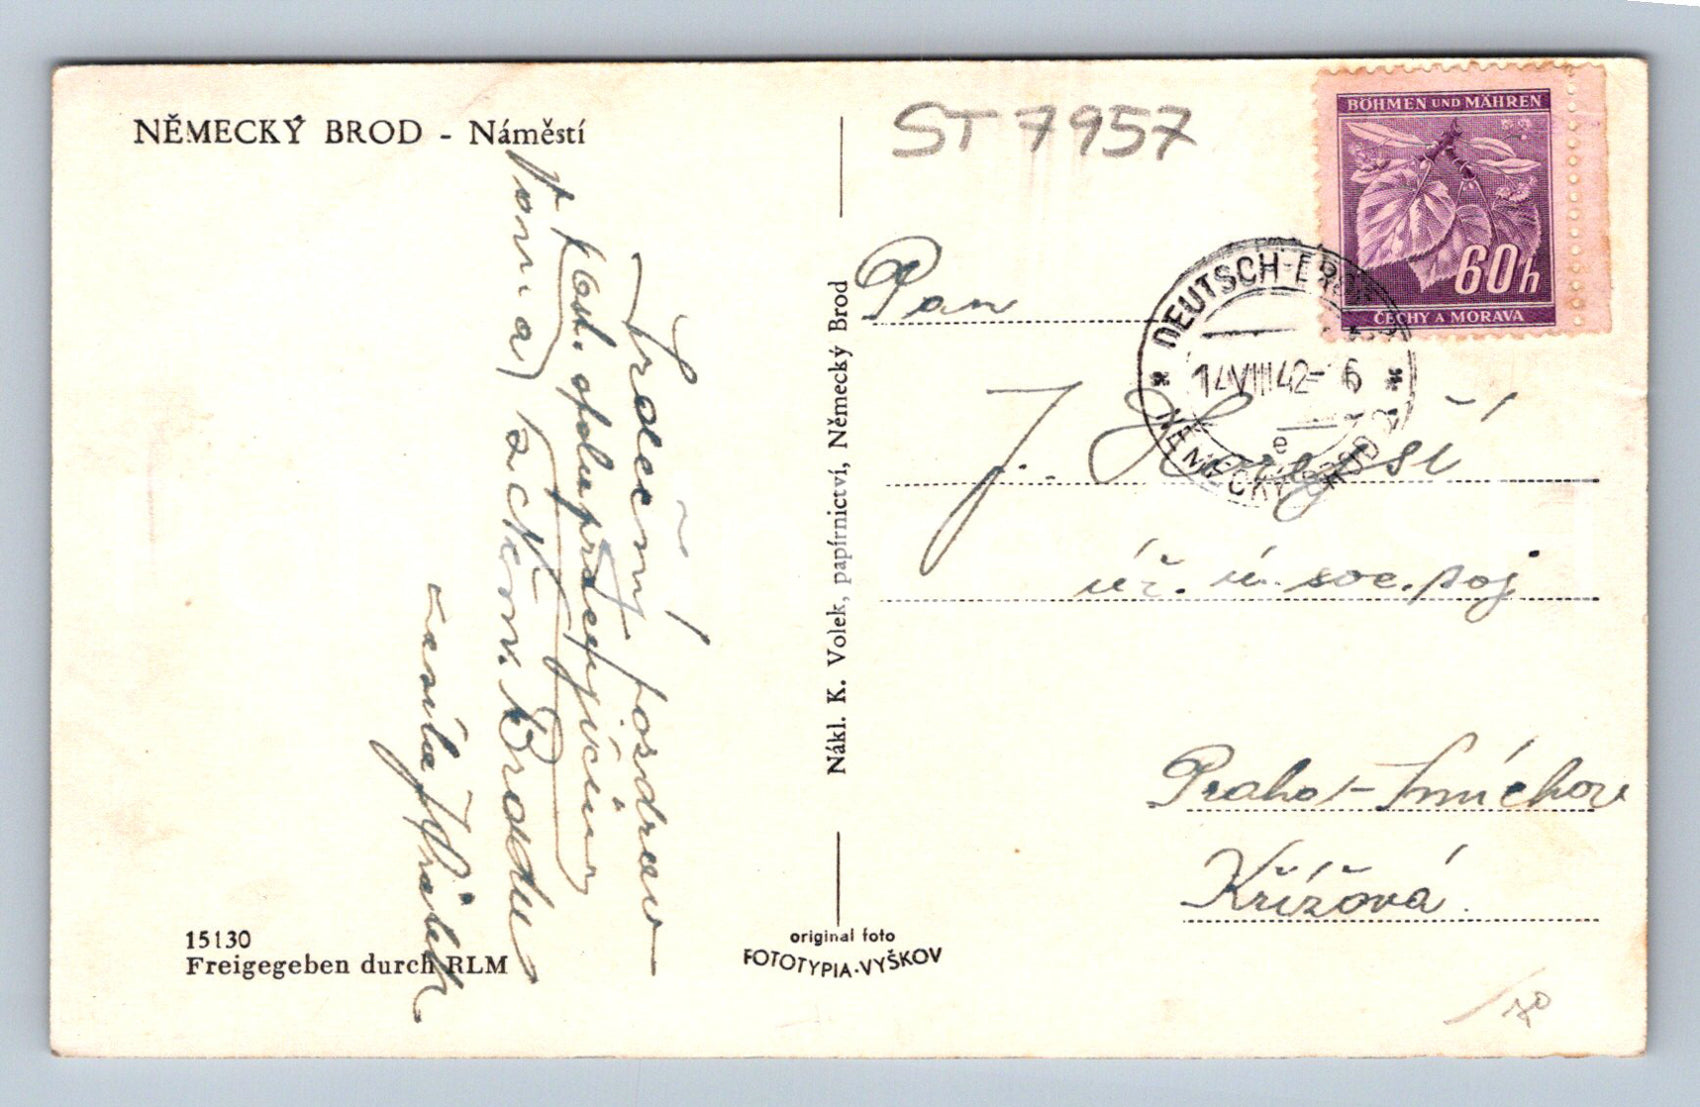 NĚMECKÝ BROD - Náměstí
ST 7957
BÖHMEN UND MÄHREN
60h
ČECHY A MORAVA
DEUTSCH-BROD
14 VIII 42 - 6
e
NĚMECKÝ BROD
Pan
J. Hořejší
úř. ú. soc. poj
Praha - Smíchov
Křížová
Srdečný pozdrav
spolupracujícím
z Něm. Brodu
zasílá
Nákl. K. Volek, papírnictví, Německý Brod
15130
Freigegeben durch RLM
original foto
FOTOTYPIA-VYŠKOV